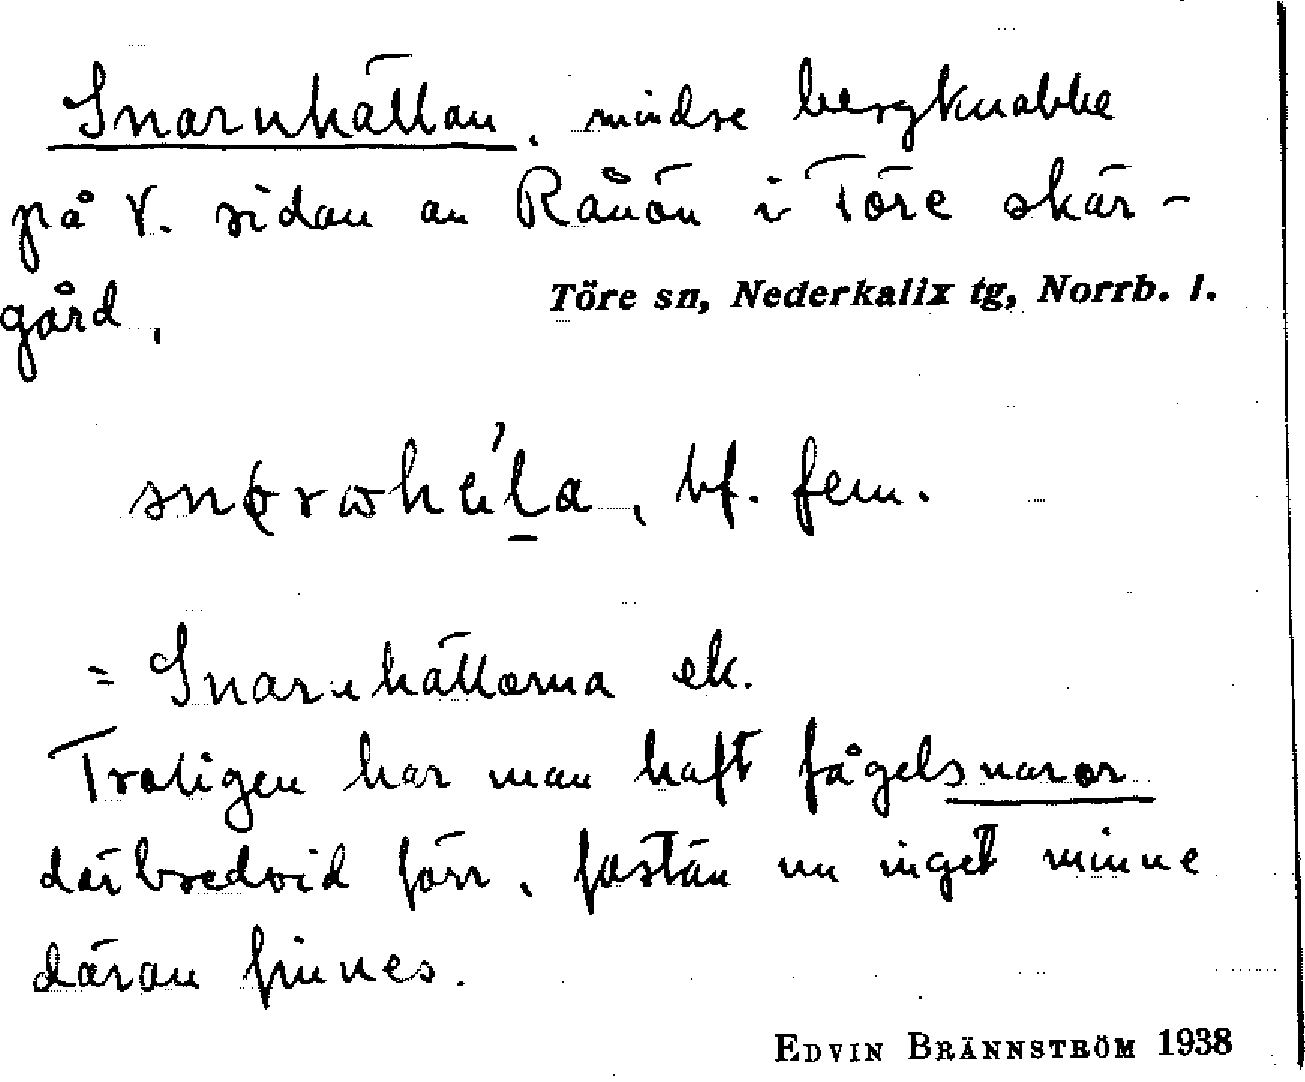 Snarnhällan, mindre bergknabbe
på V. sidan av Rånön i Töre skär-
gård,
Töre sn, Nederkalix tg, Norrb. l.
bf. fem.
= Snarnhällorna ek.
Troligen har man haft fågelsnaror
därbredvid förr, fastän nu inget minne
därav finnes.
EDVIN BRÄNNSTRÖM 1938